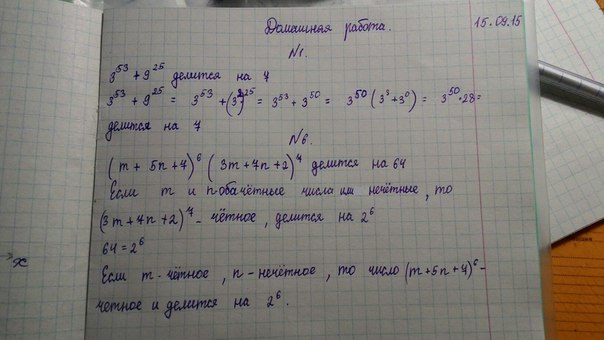 Домашная работа. 15.09.15
№1.
3^53 + 9^25 делится на 7
3^53 + 9^25 = 3^53 + (3^2)^25 = 3^53 + 3^50 = 3^50 (3^3 + 3^0) = 3^50 · 28 =
делится на 7
№6.
(m + 5n + 7)^6 (3m + 7n + 2)^7 делится на 64
Если m и n оба чётные числа или нечётные, то
(3m + 7n + 2)^7 - чётное, делится на 2^6
64 = 2^6
Если m - чётное, n - нечётное, то число (m + 5n + 7)^6 -
четное и делится на 2^6.
x